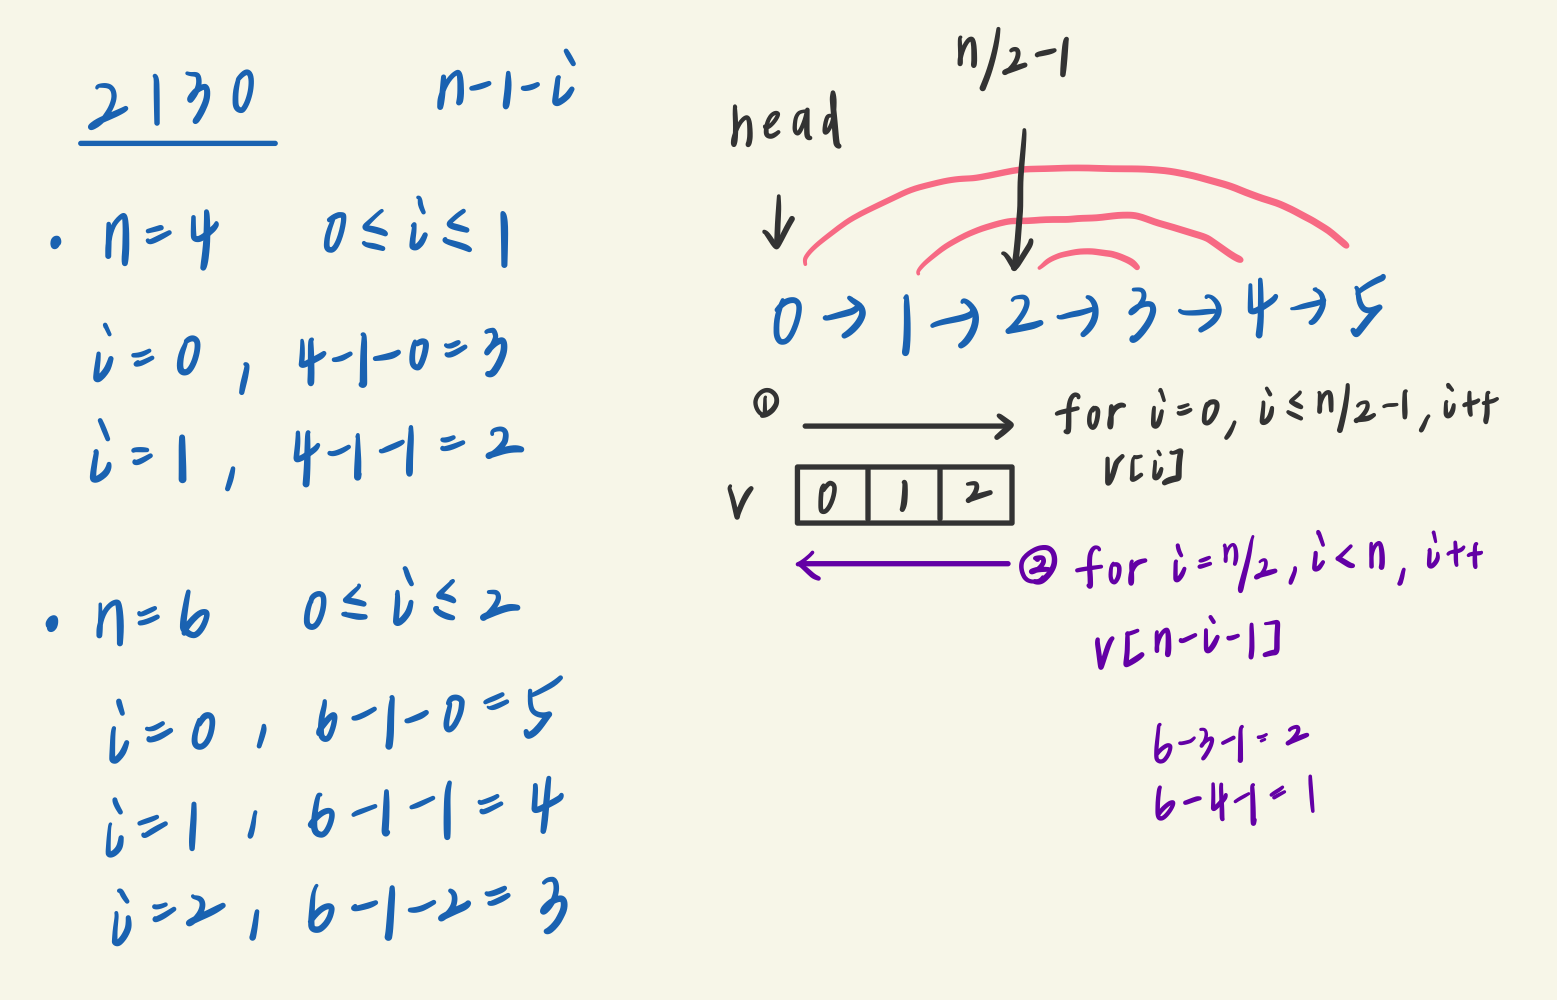 2130
n-1-i
• n=4 0≤i≤1
i=0, 4-1-0=3
i=1, 4-1-1=2
• n=6 0≤i≤2
i=0, 6-1-0=5
i=1, 6-1-1=4
i=2, 6-1-2=3
n/2-1
head
0→1→2→3→4→5
① for i=0, i≤n/2-1, i++
v[i]
v 0 1 2
② for i=n/2, i<n, i++
v[n-i-1]
6-3-1=2
6-4-1=1